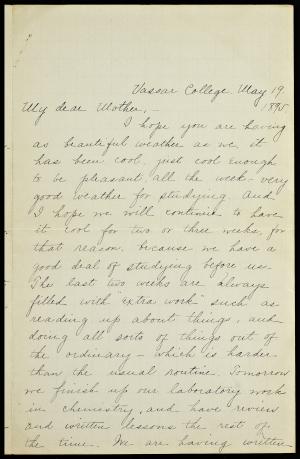 Vassar College May 19
1895
My dear Mother,-
I hope you are having
as beautiful weather as we, it
has been cool, just cool enough
to be pleasant all the week - very
good weather for studying. And
I hope we will continue to have
it cool for two or three weeks, for
that reason, because we have a
good deal of studying before us.
The last two weeks are always
filled with "extra work" such as
reading up about things, and
doing all sorts of things out of
the ordinary - which is harder
than the usual routine. Tomorrow
we finish up our laboratory work
in chemistry, and have review
and written lessons the rest of
the time. We are having written